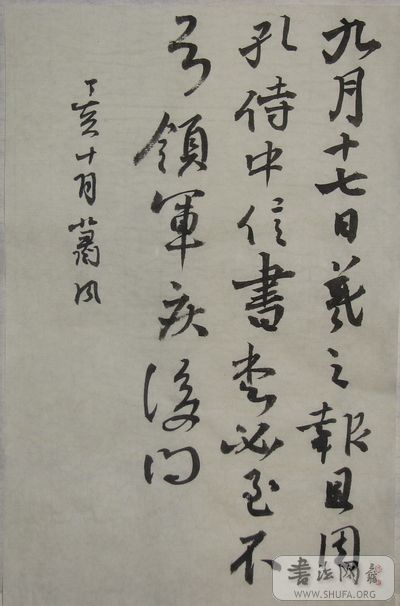 九月十七日羲之報且因
孔侍中信書想必至不
知領軍疾後問
丁亥十月蕭风
書法网
WWW.SHUFA.ORG